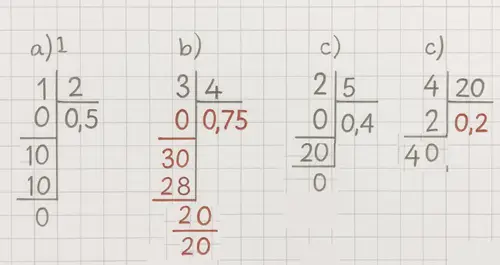 a) 1 b) c) c)
1 2 3 4 2 5 4 20
0 0,5 0 0,75 0 0,4 2 0,2
10 30 20 40
10 28 0
0 20
20